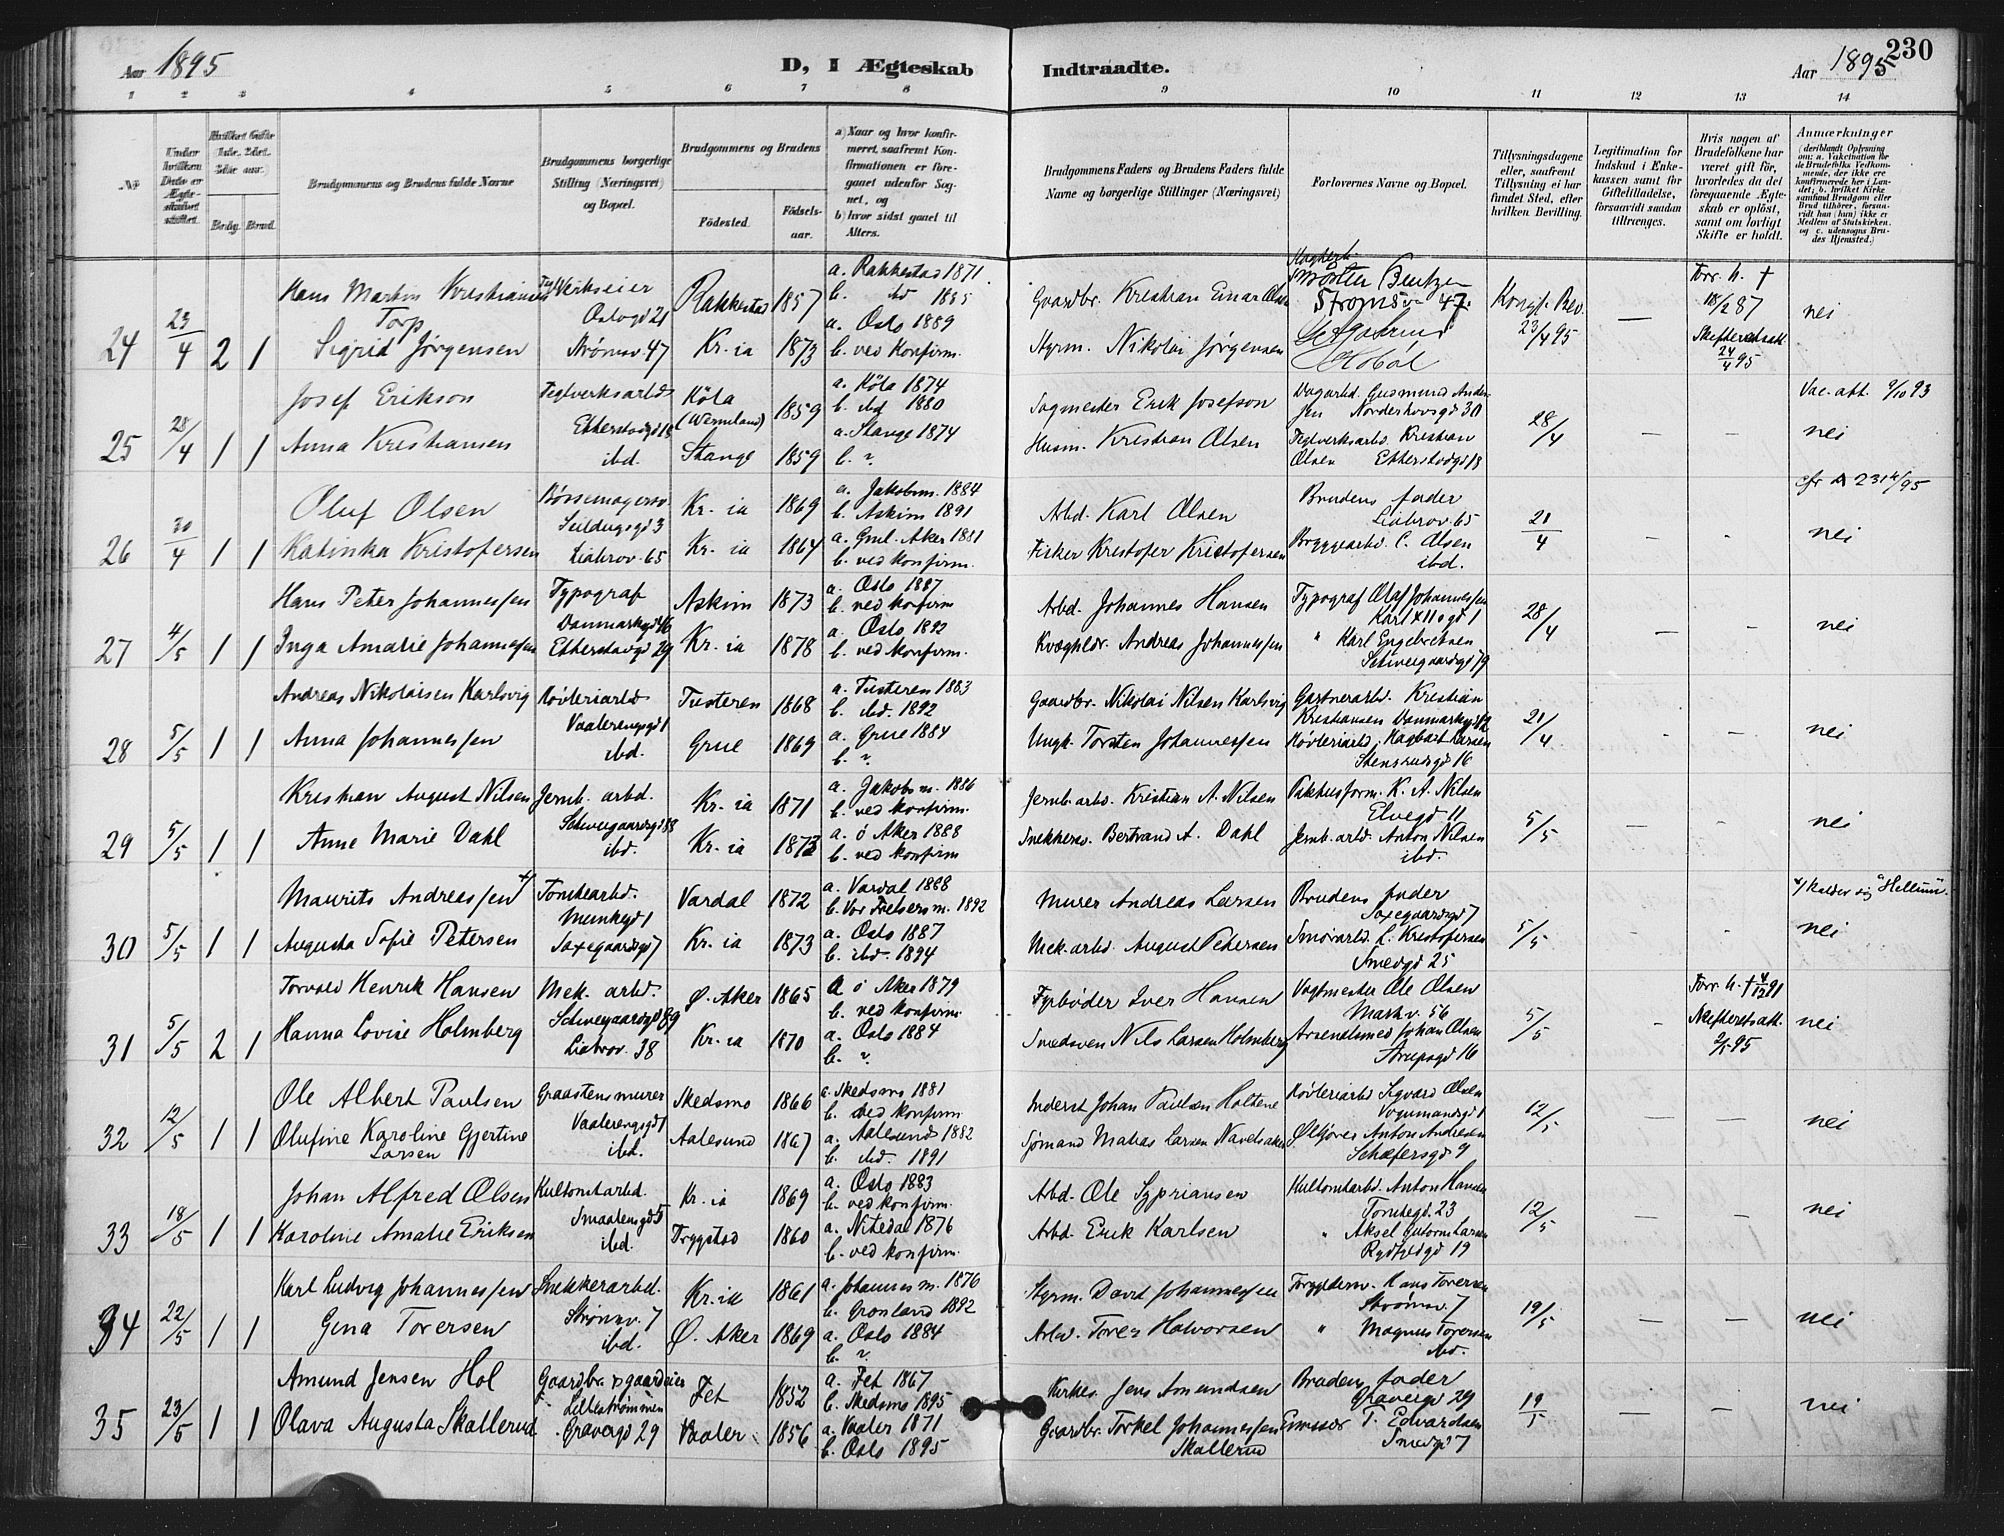 Aar 1895
D, I Ægteskab Indtraadte.
Aar 1895
230
1 2 3 4 5 6 7 8 9 10 11 12 13 14
№
Under hvilken Dato er Ægteskabet stiftet.
Brudgommens og Brudens fulde Navne
Brudgommens borgerlige Stilling (Næringsvei) og Bopæl.
Brudgommens og Brudens
Fødested.
Fødselsaar.
a) Naar og hvor konfirmeret, saafremt Konfirmationen er foregaaet udenfor Sognet, og
b) hvor sidst gaaet til Alters.
Brudgommens Faders og Brudens Faders fulde Navne og borgerlige Stillinger (Næringsvei)
Forlovernes Navne og Bopæl.
Tillysningsdagene eller, saafremt Tillysning ei har fundet Sted, efter hvilken Bevilling.
Legitimation for Indskud i Enkekassen samt for Giftetilladelse, forsaavidt saadan tiltrænges.
Hvis nogen af Brudefolkene har været gift, hvorledes da det foregaaende Ægteskab er opløst, samt om lovligt Skifte er holdt.
Anmærkninger (deriblandt Oplysning om: a. Vakcination for de Brudefolks Vedkommende, der ikke ere konfirmerede her i Landet; b. hvilket Kirkesamfund Brudgom eller Brud tilhører, forsaavidt han (hun) ikke er Medlem af Statskirken, og c. udensogns Brudes Hjemsted.)
24 23/4 2 1
Hans Martin Kristiansen Torp Rakkestad 1857 a. Rakkestad 1871 b. ibd 1895
Gaardbr. Kristian Einar Olsen Strømsv 47 Kongl. Bev. 23/4 95 Forr. h. † 18/2 87 nei
Sigrid Jørgensen Strømsv 47 Kr.ia 1873 a. Oslo 1889 b. ved Konfirm.
Styrm. Nikolai Jørgensen Skifteretsatt. 24/4 95
25 28/4 1 1
Josef Erikson Teglverksarbd Etterstadgd 18 Köla (Wermland) 1859 a. Köla 1874 b. ibd 1880
Sagmester Erik Josefson Dagarbd. Gudmund Andersen Norderhovsgd 30 28/4 Vac. att. 9/10 93
Anna Kristiansen ibd. Stange 1859 a. Stange 1874 b. ?
Husm. Kristian Olsen Teglverksarbd. Kristian Olsen Etterstadgd 18 nei
26 30/4 1 1
Oluf Olsen Børsemagersv Seildugsgd 3 Kr.ia 1869 a. Jakobsm. 1884 b. Askim 1891
Arbd. Karl Olsen Brudens fader Liabrov. 65 21/4
Katinka Kristofersen Liabrov. 65 Kr.ia 1864 a. Gml. Aker 1881 b. ved konfirm.
Fisker Kristofer Kristofersen Bryggearbd C. Olsen ibd. nei
27 4/5 1 1
Hans Peter Johannessen Typograf Danmarksgd 46 Askim 1873 a. Oslo 1887 b. ved konfirm
Arbd. Johannes Hansen Typograf Olaf Johannessen Karl XII s gd 1 28/4
Inga Amalie Johannessen Etterstadgd 29 Kr.ia 1878 a. Oslo 1892 b. ved konfirm.
Kvæghdlr. Andreas Johannessen " Karl Engebretsen Schweigaardsgd 79 nei
28 5/5 1 1
Andreas Nikolaisen Karlsvig Høvleriarbd Vaalerengsgd 1 Tusteren 1868 a. Tusteren 1883 b. ibd. 1892
Gaardbr. Nikolai Nilsen Karlsvig Gartnerarbd. Kristian Kristiansen Danmarksgd 12 21/4
Anna Johannessen ibd. Grue 1869 a. Grue 1884 b. ?
Ungk. Torsten Johannessen Høvleriarbd. Hagbart Larsen Stensrudsgd 16 nei
29 5/5 1 1
Kristian August Nilsen Jernb. arbd. Schweigaardsgd 88 Kr.ia 1871 a. Jakobs m. 1886 b. ved konfirm.
Jernb. arbd. Kristian A. Nilsen Pakhusform. K. A. Nilsen Elvegd 11 5/5
Anne Marie Dahl ibd. Kr.ia 1873 a. ø Aker 1888 b. ved konfirm
Snekkersv. Bertrand A. Dahl Jernb. arbd. Anton Nilsen ibd. nei
30 5/5 1 1
Maurits Andreassen Tomtearbd. Munkegd 1 Vardal 1872 a. Vardal 1888 b. Vor Frelsers m. 1892
Murer Andreas Larsen Brudens fader Saxegaardsgd 7 5/5 Kalder sig "Hellum".
Augusta Sofie Petersen Saxegaardsgd 7 Kr.ia 1873 a. Oslo 1887 b. ibd. 1894
Mek. arbd. August Petersen L. Kristofersen Smedgd 25 nei
31 5/5 2 1
Torvald Henrik Hansen Mek. arbd. Schweigaardsgd 89 Ø. Aker 1865 a ø Aker 1879 b. ved konfirm.
Fyrbøder Iver Hansen Vogtmester Ole Olsen Markv. 56 5/5 Forr. h. † 4/12 91
Hanna Lovise Holmberg Liabrov. 38 Kr.ia 1870 a. Oslo 1884 b. ?
Smedsven Nils Larsen Holmberg Arsenalsmed Johan Olsen Strupsgd 16 Skifteretsatt. 2/5 95 nei
32 12/5 1 1
Ole Albert Paulsen Graastensmurer Vaalerengsgd 1 Skedsmo 1866 a. Skedsmo 1881 b. ved konfirm
Inderst Johan Paulsen Holtene Høvleriarbd Sigvard Olsen Vognmandsgd 1 12/5
Olufine Karoline Gjertine Larsen ibd. Aalesund 1867 a. Aalesund 1882 b. ibd. 1891
Sjømand Matias Larsen Ølkjører Anton Andresen Schæfersgd 9 nei
33 18/5 1 1
Johan Alfred Olsen Kultomtarbd. Smaalensgd 5 Kr.ia 1869 a. Oslo 1883 b. ved konfirm.
Arbd. Ole Sypriansen Kultomtarbd. Anton Hansen Tomtegd. 23 12/5
Karoline Amalie Eriksen ibd. Trygstad 1860 a. Nitedal 1876 b. ved konfirm.
Arbd. Erik Karlsen " Aksel Gutorm Larsen 19 nei
34 22/5 1 1
Karl Ludvig Johannessen Snekkerarbd. Strømsv. 7 Kr.ia 1861 a. Johannes m. 1876 b. Grønland 1892
Styrm. David Johannessen Forgyldersv. Hans Toversen Strømsv. 7 19/5
Gina Toversen ibd. Ø. Aker 1869 a. Oslo 1884 b. ?
Arbd. Tover Halvorsen " Magnus Toversen ibd. nei
35 23/5 1 1
Amund Jensen Hol Gaardbr. Lillestrømmen Fet 1852 a. Fet 1867 b. Skedsmo 1895
Kirkes. Jens Amundsen Brudens fader Gravergd 29 19/5
Olava Augusta Skallerud Gravergd 29 Vaaler 1856 a. Vaaler 1871 b. Oslo 1895
Gaardbr. Torkel Johannessen Skallerud T. Edvardsen Smedgd 7 nei